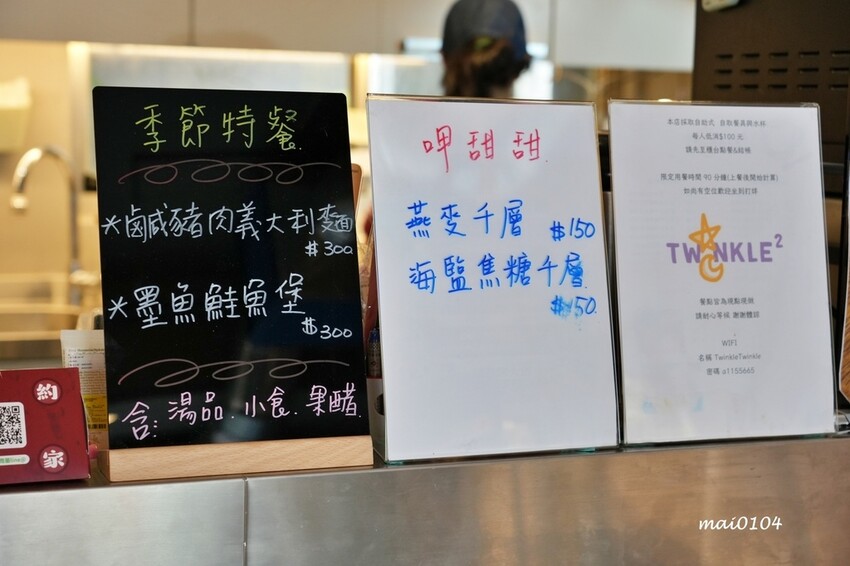 季節特餐
*鹹鹹豬肉義大利麵
$300
*墨魚鮭魚堡
$300
含:湯品.小食.果醋.
呷甜甜
燕麥千層 $150
海鹽焦糖千層
$150
本店採取自助式 自取餐具與水杯
每人低消$100元
請先至櫃台點餐&結帳
限定用餐時間90分鐘(上餐後開始計算)
如尚有空位歡迎坐到打烊
TWINKLE2
餐點皆為現點現做
請耐心等候 謝謝體諒
WIFI
名稱 TwinkleTwinkle
密碼 a1155665
約
家
mai0104